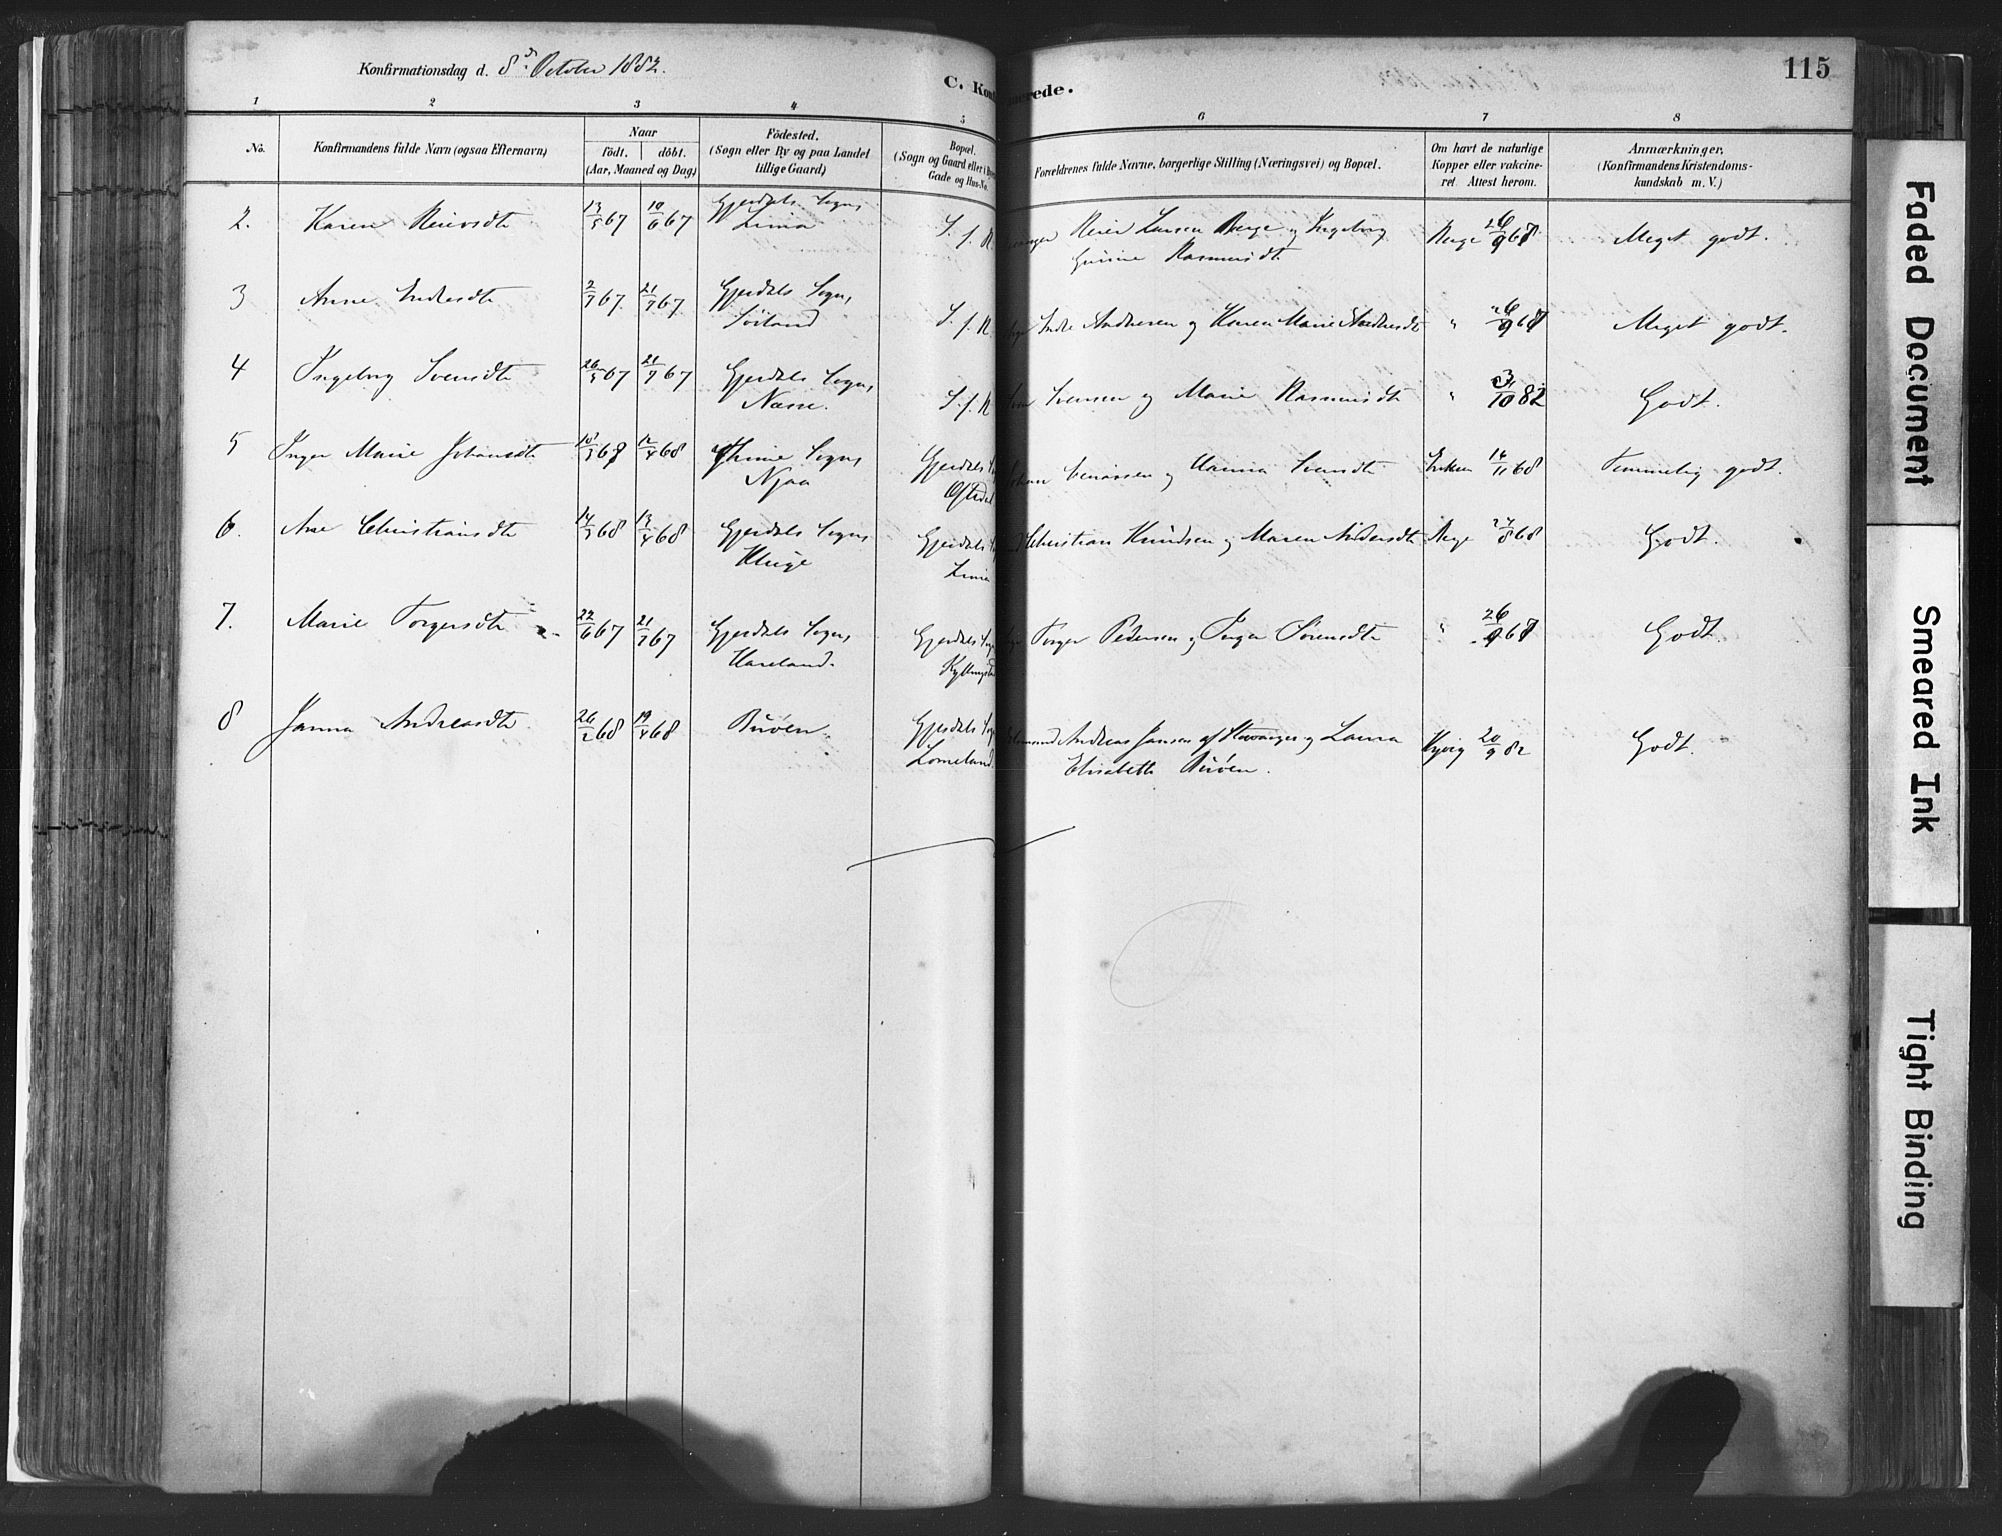 Konfirmationsdag d. 8de October 1882.
C. Kon
merede.
115
1 2 3 4 5 6 7 8
No.
Konfirmandens fulde Navn (ogsaa Efternavn)
Naar
födt. döbt.
(Aar, Maaned og Dag)
Födested.
(Sogn eller By og paa Landet
tillige Gaard)
Bopæl.
(Sogn og Gaard eller i
Gade og Hus-No.
Forældrenes fulde Navne, borgerlige Stilling (Næringsvei) og Bopæl.
Om havt de naturlige
Kopper eller vakcine-
ret. Attest herom.
Anmærkninger.
(Konfirmandens Kristendoms-
kundskab m. V.)
2. Karen 13/5 67 10/6 67 Gjesdals Sogn,
Lima
S. f. N.
Reier Larsen Berge og Ingeborg
Rasmusdt
Berge 26/9 68 Meget godt.
3 Anne Endresdt 2/7 67. 21/7 67. Gjesdals Sogn,
Sörland
S. f. N.
Endre Andersen og Karen Marie
" 26/9 68 Meget godt.
4 Ingeborg Svensdt 26/5 67 21/7 67 Gjesdals Sogn,
Næsse.
S. f. N
Svensen og Marie Rasmusdt
" 3/10 82 Godt.
5 Inger Marie Johansdt 10/3 68 12/4 68 Thime Sogn,
Njaa
Gjesdals
Oftedal
og Hanna Svensdt
14/11 68 Temmelig godt.
6. Ane Christiansdt 14/3 68 13/4 68 Gjesdals Sogn,
Kluge
Gjesdals
Lima
Christian Knudsen og Maren Andersdt
Berge 24/8 68 Godt.
7. Marie Torgersdt 22/6 67 21/7 67 Gjesdals Sogn,
Haveland.
Gjesdals Sogn
Kyllingstad
Torger Pedersen og Inger Sörensdt
" 26/9 68 Godt
8 Janna Andreasdt 26/2 68 19/4 68 Buöen.
Gjesdals Sogn
Lomeland.
Andreas Jansen af Stavanger og Laura
Elisabeth Buöen.
20/9 82 Godt.
Faded Document
Smeared Ink
Tight Binding